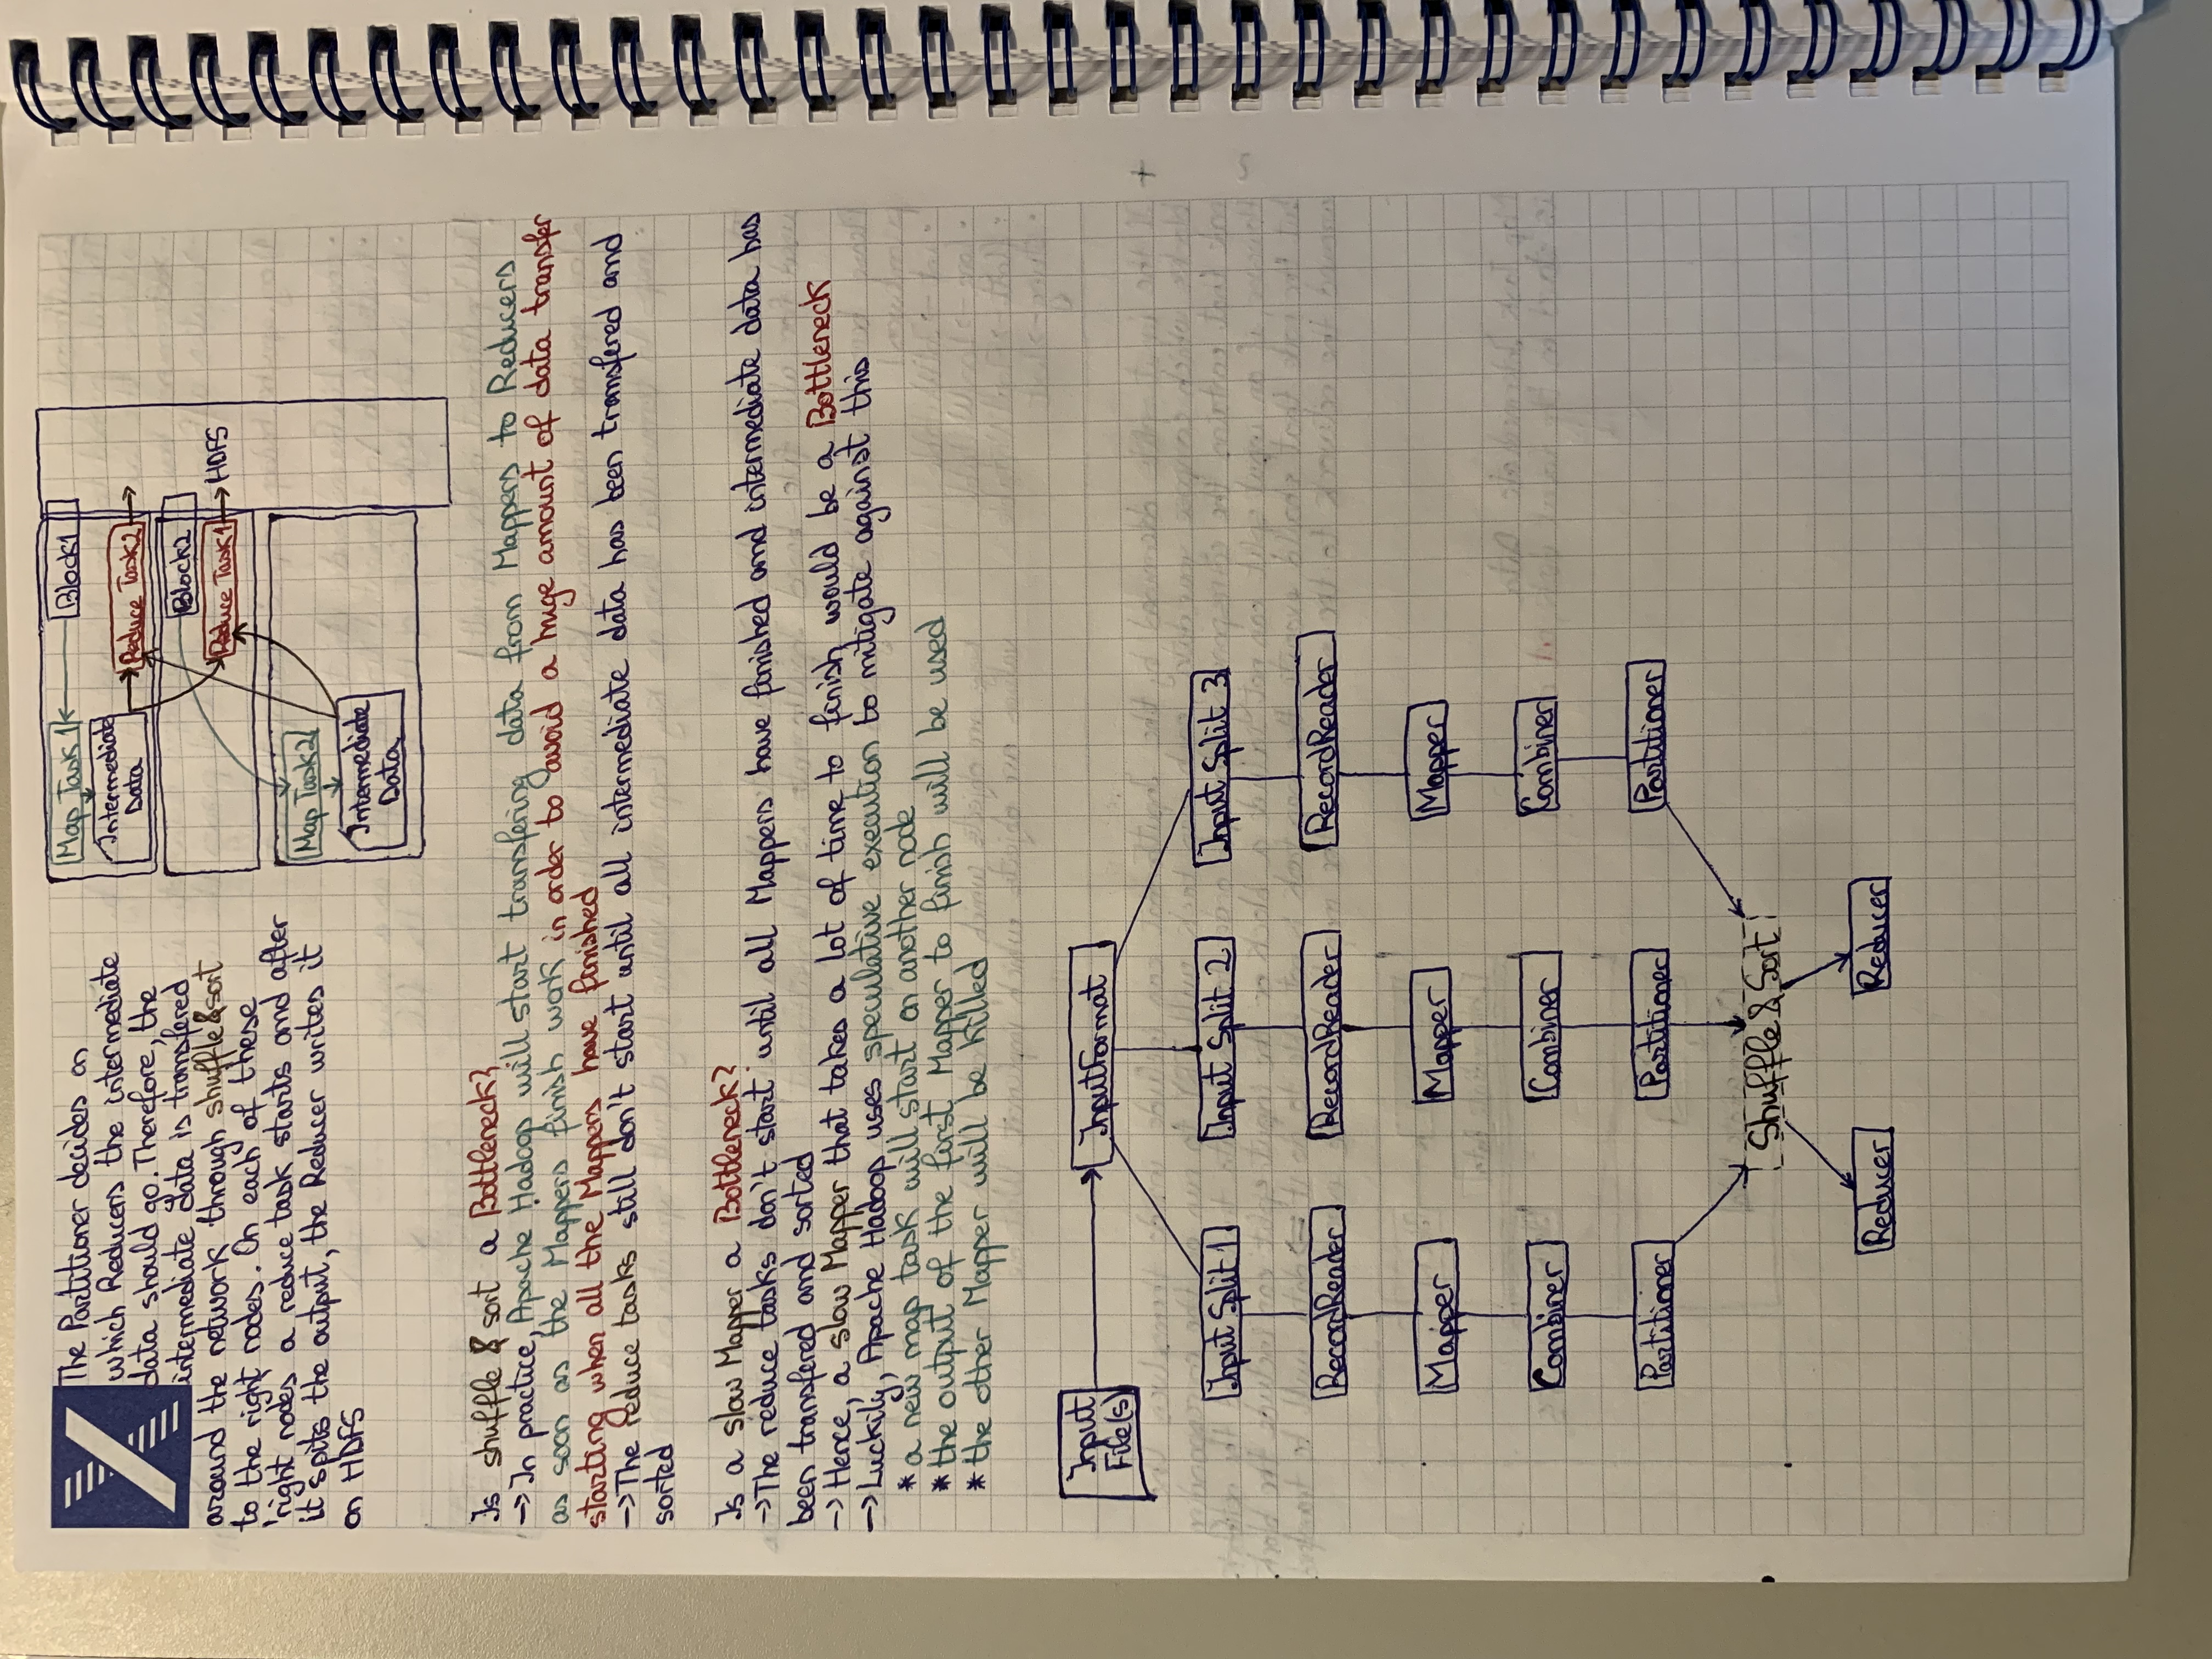 The Partitioner decides on
which Reducers the intermediate
data should go. Therefore, the
intermediate data is transfered
around the network through shuffle & sort
to the right nodes. On each of these
'right nodes a reduce task starts and after
it spits the output, the Reducer writes it
on HDFS
Map Task 1
Block1
Intermediate
Data
Reduce Task2
Block2
Reduce Task1
HDFS
Map Task2
Intermediate
Data
Is shuffle & sort a Bottleneck?
->In practice, Apache Hadoop will start transfering data from Mappers to Reducers
as soon as the Mappers finish work in order to avoid a huge amount of data transfer
starting when all the Mappers have finished
->The reduce tasks still don't start until all intermediate data has been transfered and
sorted
Is a slow Mapper a Bottleneck?
->The reduce tasks don't start until all Mappers have finished and intermediate data has
been transfered and sorted
->Hence, a slow Mapper that takes a lot of time to finish would be a Bottleneck
->Luckily, Apache Hadoop uses speculative execution to mitigate against this
* a new map task will start on another node
* the output of the first Mapper to finish will be used
* the other Mapper will be killed
Input
File(s)
InputFormat
Input Split 1
Input Split 2
Input Split 3
RecordReader
RecordReader
RecordReader
Mapper
Mapper
Mapper
Combiner
Combiner
Combiner
Partitioner
Partitioner
Partitioner
Shuffle & Sort
Reducer
Reducer